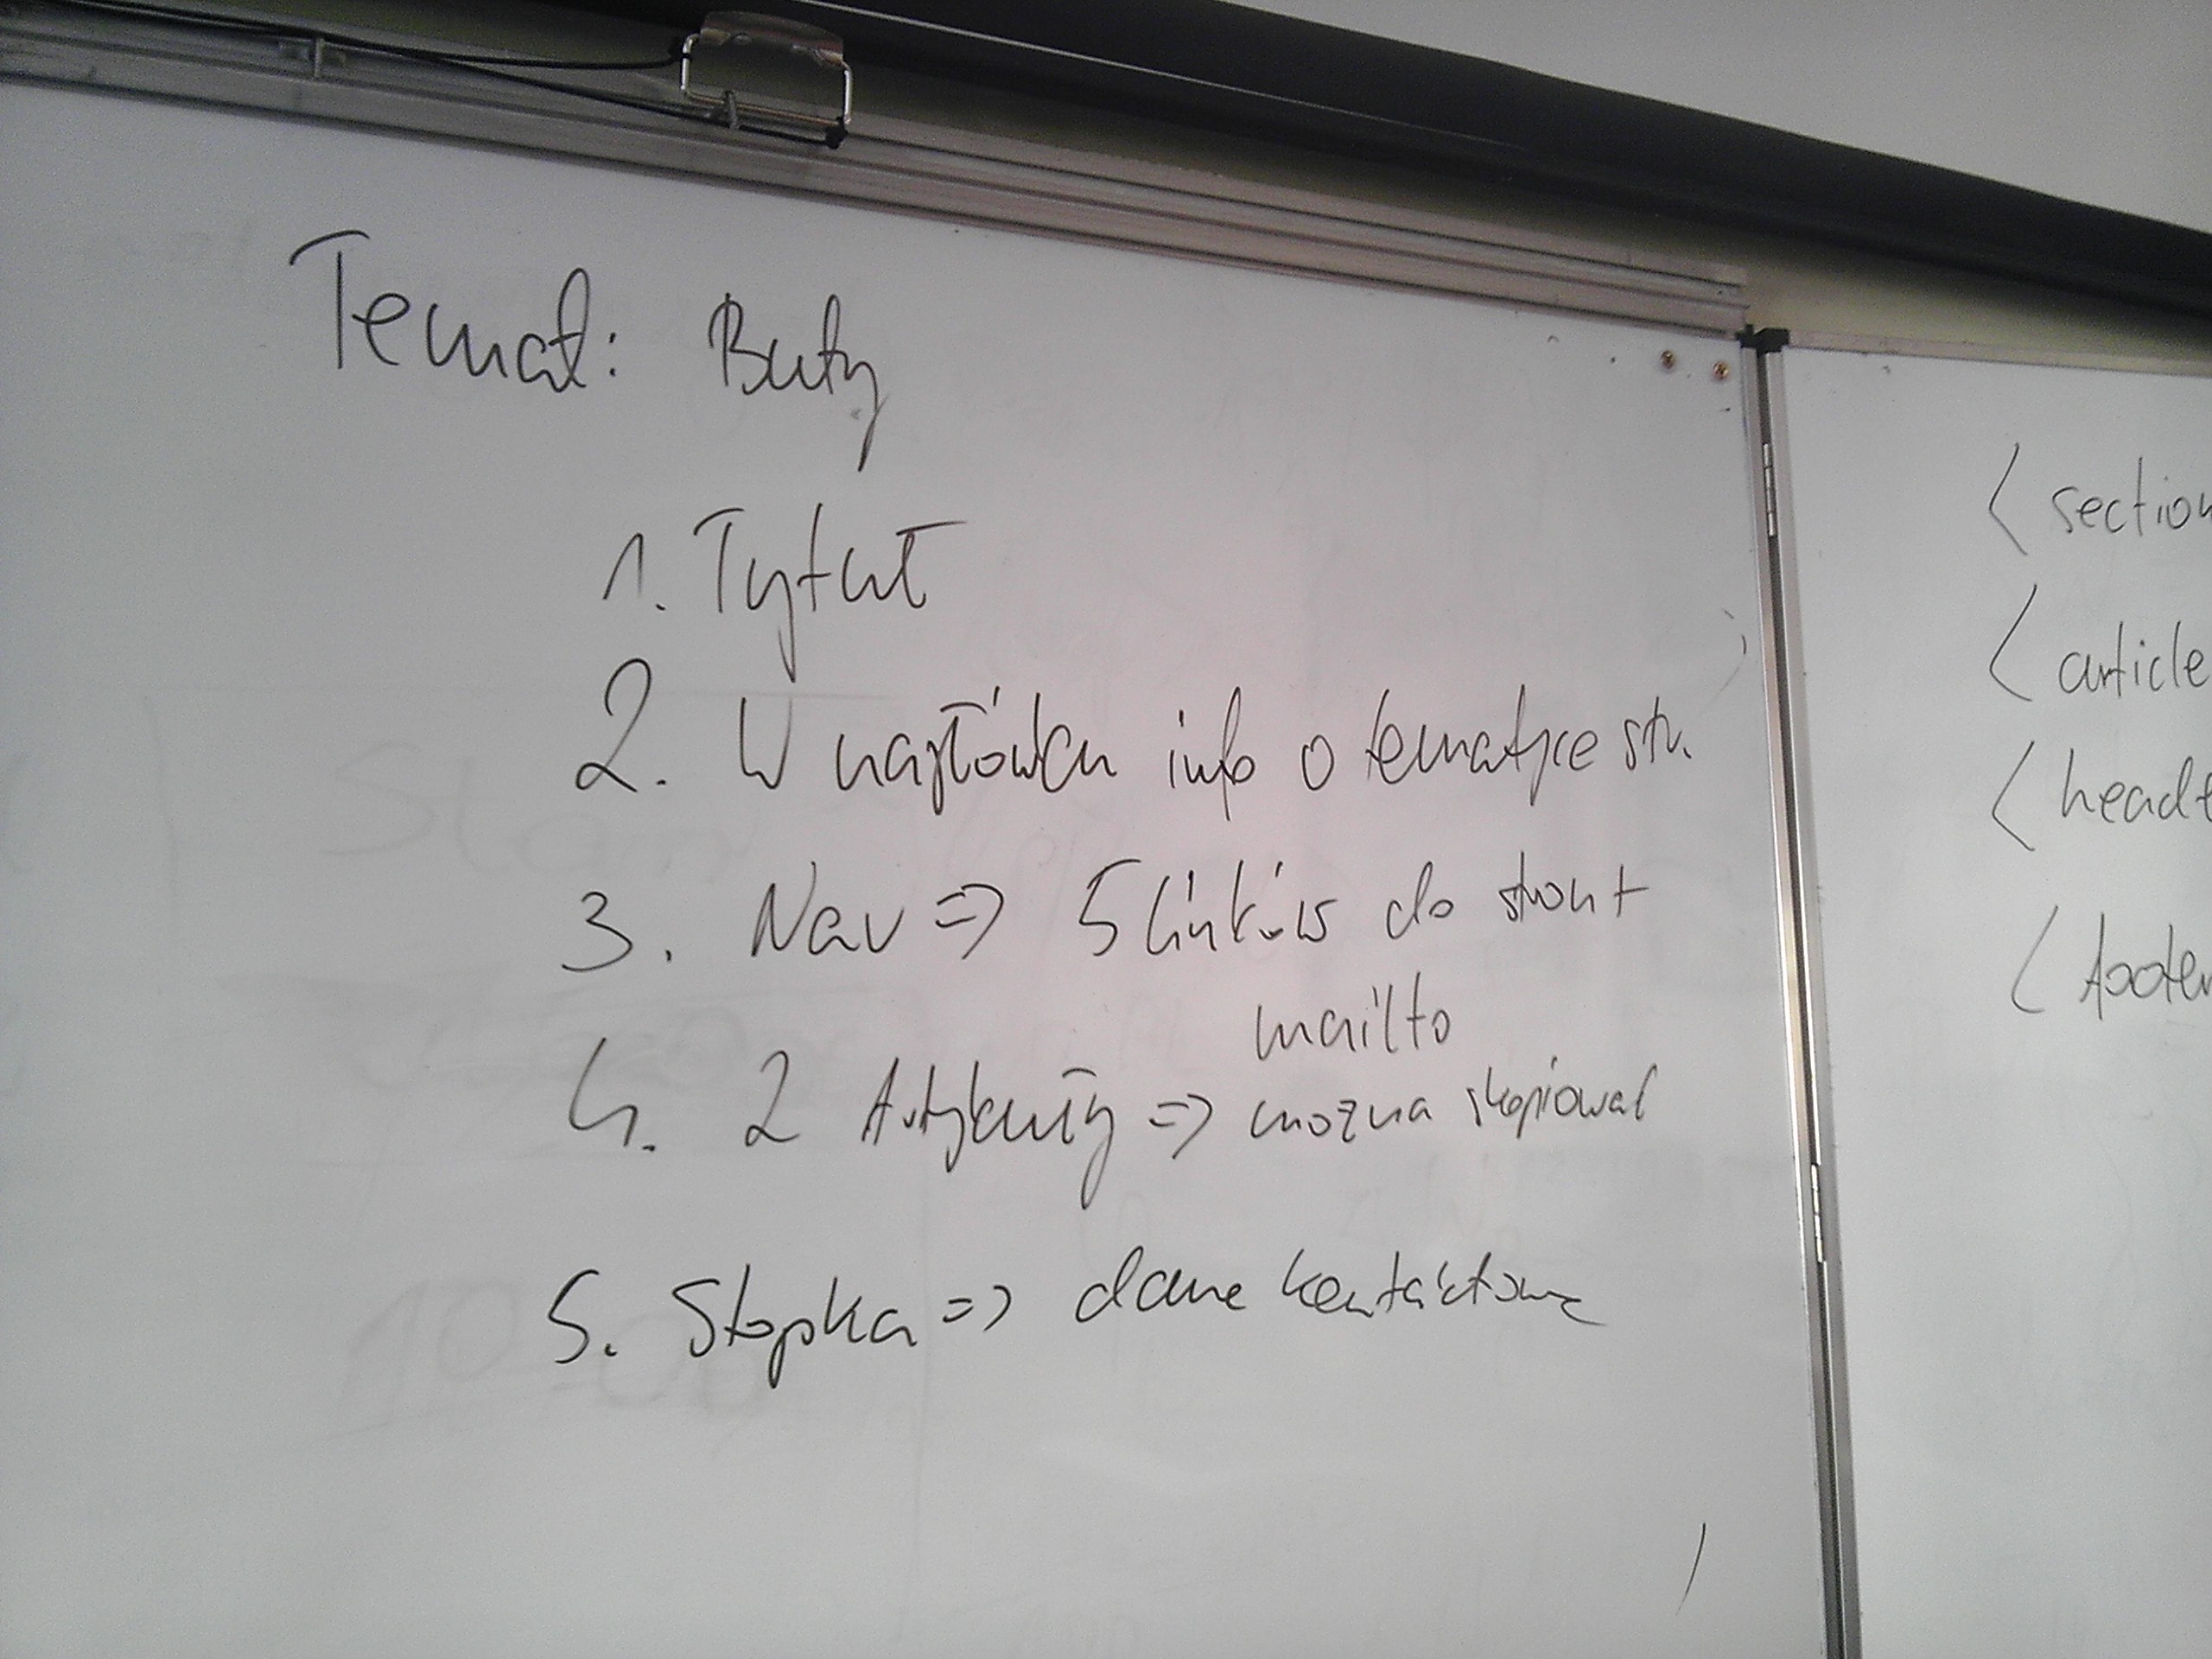 Temat: Buty
1. Tytuł
2. W nagłówku info o tematyce str.
3. Nav => 5 linków do stron +
mailto
4. 2 Artykuły => można skopiować
5. Stopka => dane kontaktowe
< section
< article
< head
< footer